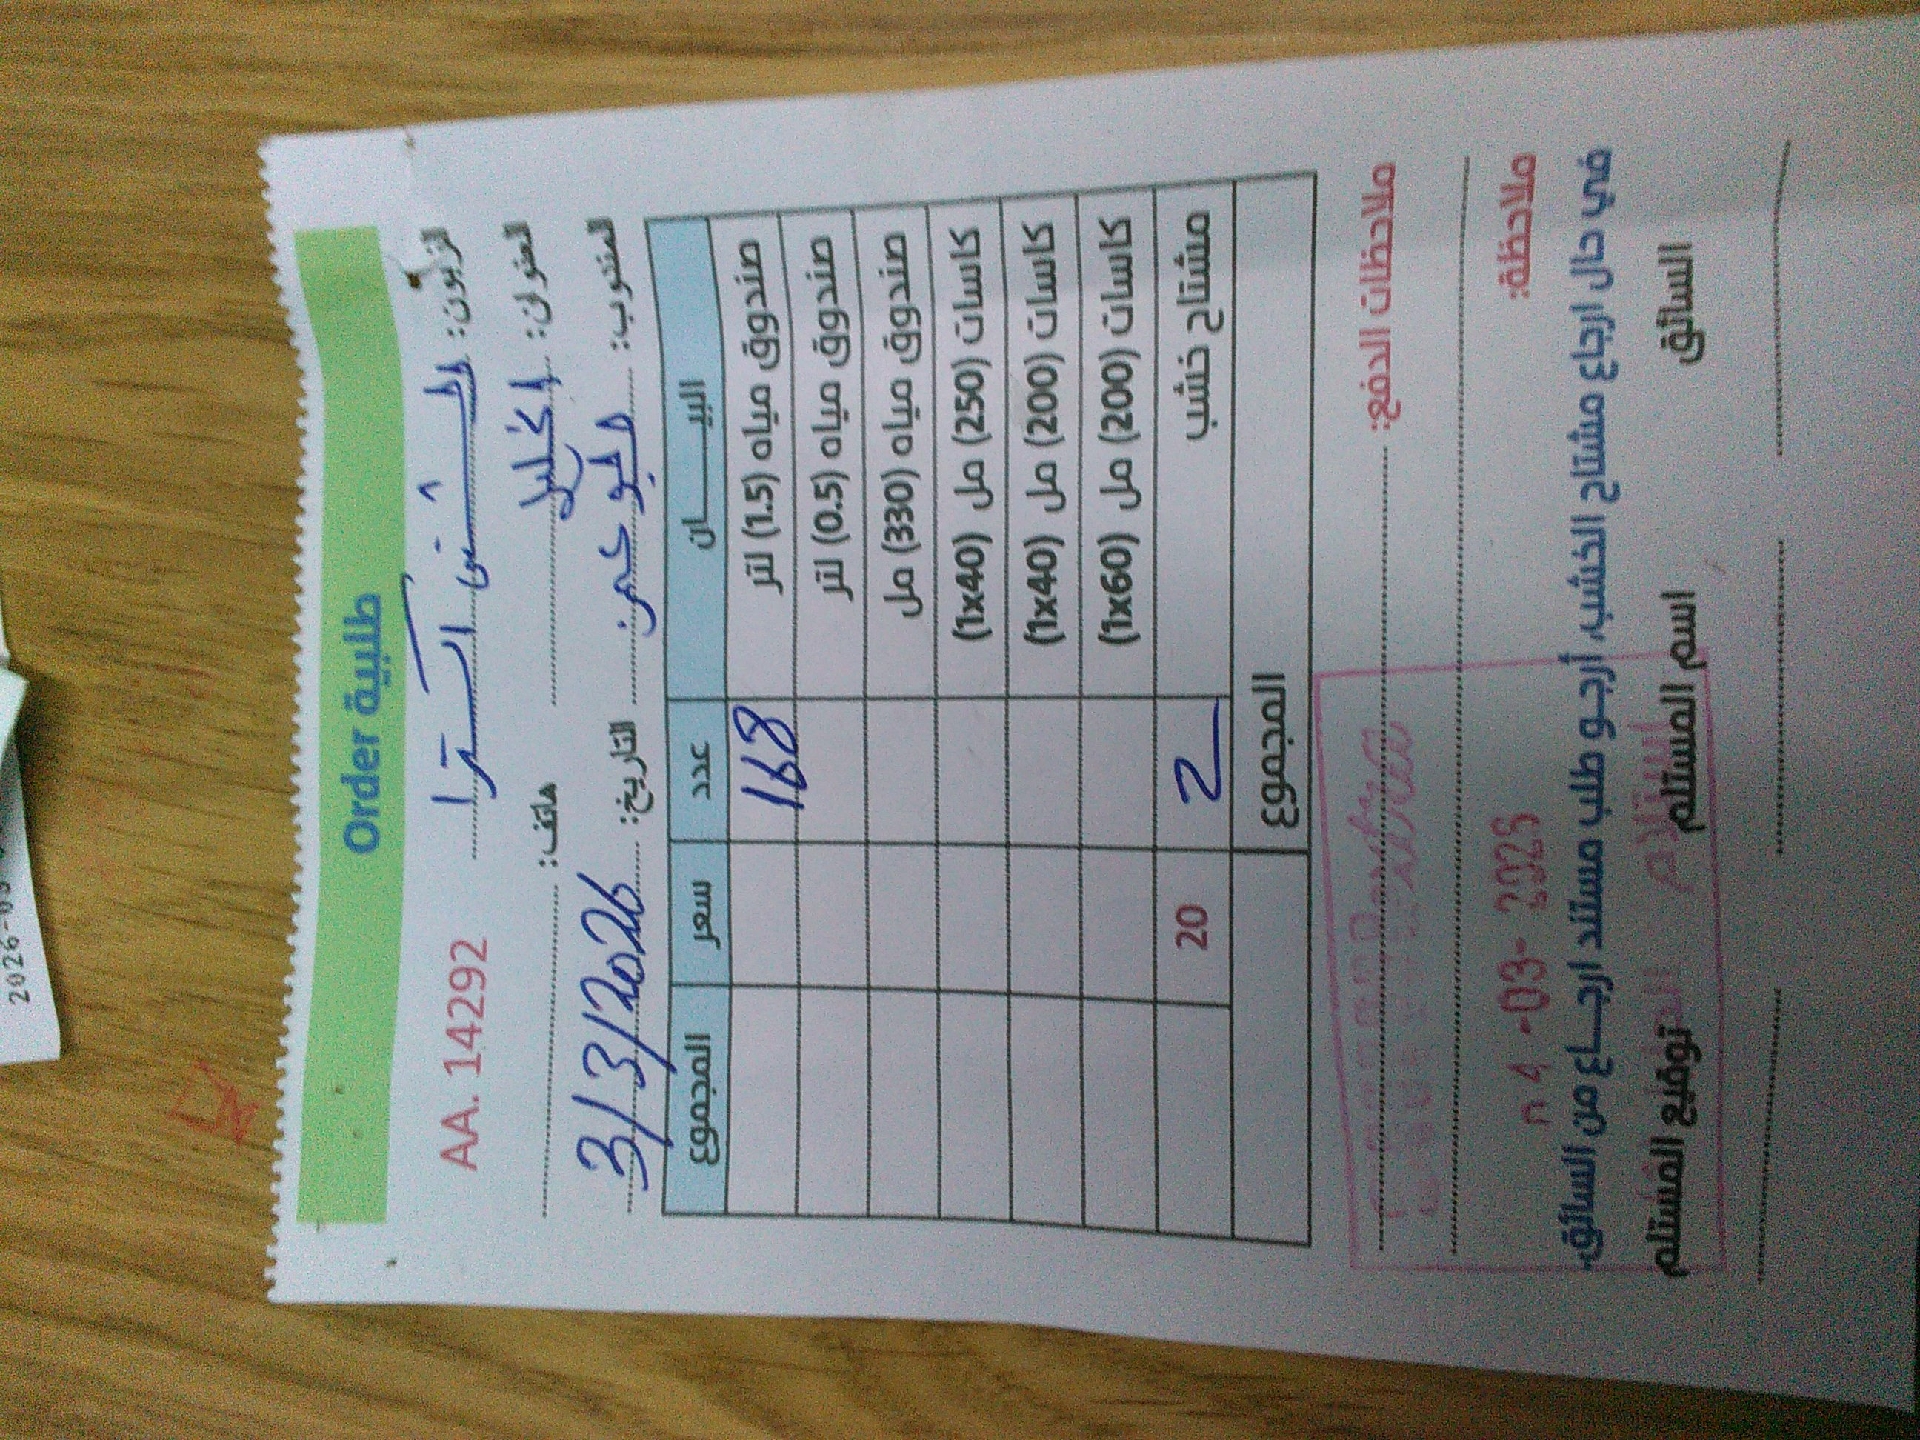 Order طلبية
الزبون: AA. 14292
العنوان: الخليل هاتف:
المندوب: ابو عمر التاريخ: 3/3/2026
البيـــــان عدد سعر المجموع
صندوق مياه (1.5) لتر 168
صندوق مياه (0.5) لتر
صندوق مياه (330) مل
كاسات (250) مل (1x40)
كاسات (200) مل (1x40)
كاسات (200) مل (1x60)
مشتاح خشب 2 20
المجموع
ملاحظات الدفع:
ملاحظة:
في حال ارجاع مشتاح الخشب، أرجـو طلب مستند ارجــاع من السائق.
السائق اسم المستلم توقيع المستلم